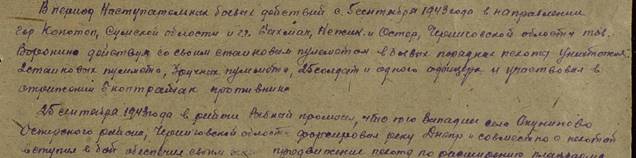 В период Наступательных боевых действий с 5 сентября 1943 года в направлении
гор Конотоп, Сумской области и гг. Бахмач, Нежин и Остер, Черниговской области тов.
Воронино действуя со своим станковым пулеметом в боевых порядках пехоты уничтожил
2 станковых пулемёта, 3 ручных пулемёта, 25 солдат и одного офицера и участвовал в
отражении контратак противника
25 сентября 1943 года в районе что юго западнее село Окуниново
Остерского района, Черниговской области форсировал реку Днепр и совместно с пехотой
вступил в бой обеспечив своим продвижение пехоты по расширению плацдарма